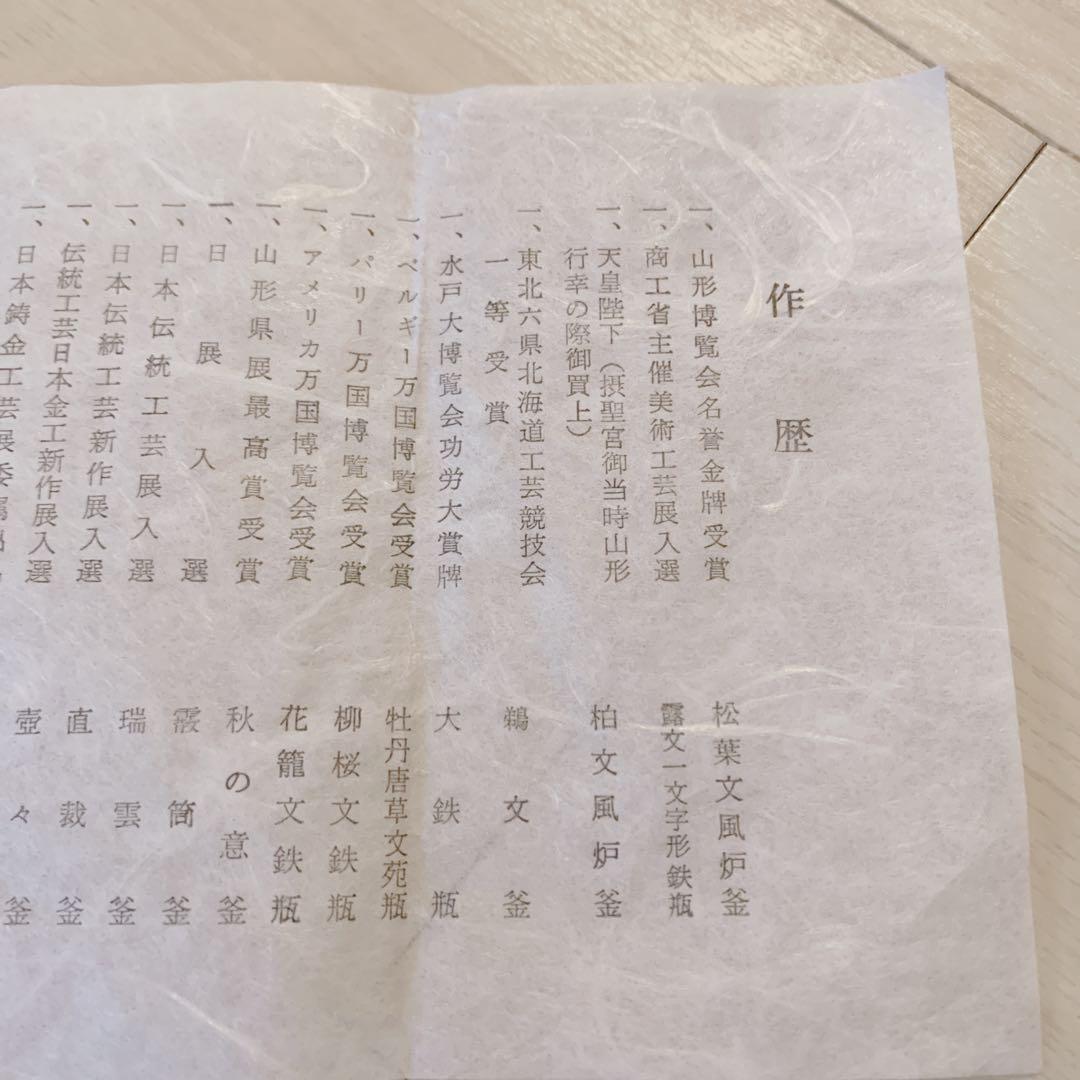 作歴
一、山形博覧会名誉金牌受賞 松葉文風炉釜
一、商工省主催美術工芸展入選 露文一文字形鉄瓶
一、天皇陛下（摂聖宮御当時山形
行幸の際御買上） 柏文風炉釜
一、東北六県北海道工芸競技会
一等受賞 鵜文釜
一、水戸大博覧会功労大賞牌 大鉄瓶
一、ベルギー万国博覧会受賞 牡丹唐草文苑瓶
一、パリー万国博覧会受賞 柳桜文鉄瓶
一、アメリカ万国博覧会受賞 花籠文鉄瓶
一、山形県展最高賞受賞 秋の意釜
一、日展入選 霰筒釜
一、日本伝統工芸展入選 瑞雲釜
一、日本伝統工芸新作展入選 直裁釜
一、伝統工芸日本金工新作展入選 壺々釜
一、日本鋳金工芸展委嘱出